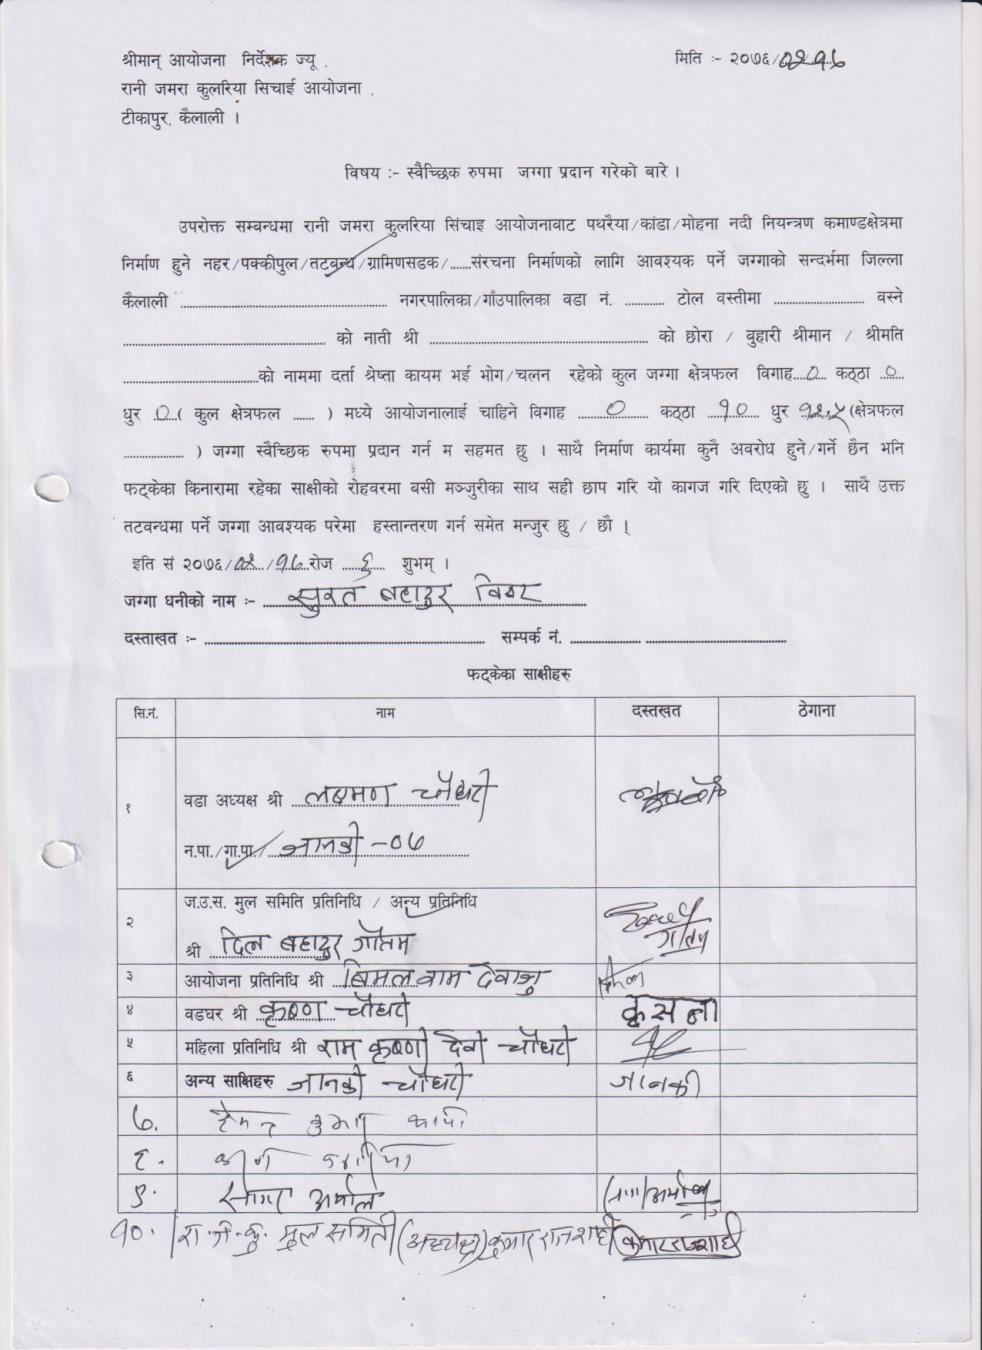 श्रीमान् आयोजना निर्देशक ज्यू ,
मिति :- २०७६/०२/१७
रानी जमरा कुलरिया सिचाई आयोजना ,
टीकापुर, कैलाली ।
विषय :- स्वैच्छिक रुपमा जग्गा प्रदान गरेको बारे ।
उपरोक्त सम्वन्धमा रानी जमरा कुलरिया सिंचाइ आयोजनावाट पथरैया/कांडा/मोहना नदी नियन्त्रण कमाण्डक्षेत्रमा
निर्माण हुने नहर/पक्कीपुल/तटवन्ध/ग्रामिणसडक/......संरचना निर्माणको लागि आवश्यक पर्ने जग्गाको सन्दर्भमा जिल्ला
कैलाली .................... नगरपालिका/गाँउपालिका वडा नं. ............ टोल वस्तीमा .................... वस्ने
.................... को नाती श्री .................... को छोरा / वुहारी श्रीमान / श्रीमति
....................को नाममा दर्ता श्रेष्ता कायम भई भोग/चलन रहेको कुल जग्गा क्षेत्रफल विगाह...०... कठ्ठा ..०..
धुर ..०..( कुल क्षेत्रफल ...... ) मध्ये आयोजनालाई चाहिने विगाह .....०..... कठ्ठा ...१०... धुर (क्षेत्रफल
.................. ) जग्गा स्वैच्छिक रुपमा प्रदान गर्न म सहमत छु । साथै निर्माण कार्यमा कुनै अवरोध हुने/गर्ने छैन भनि
फट्केका किनारामा रहेका साक्षीको रोहवरमा बसी मञ्जुरीका साथ सही छाप गरि यो कागज गरि दिएको छु । साथै उक्त
तटवन्धमा पर्ने जग्गा आवश्यक परेमा हस्तान्तरण गर्न समेत मन्जुर छु / छौ ।
इति सं २०७६/०२/१७ रोज ...६... शुभम् ।
जग्गा धनीको नाम :- सुरत बहादुर
दस्ताखत :- .................... सम्पर्क नं. ....................
फट्केका साक्षीहरु
सि.नं. नाम दस्तखत ठेगाना
१ वडा अध्यक्ष श्री लक्ष्मण चौधरी
न.पा./गा.पा./ जानकी -०७
२ ज.उ.स. मुल समिति प्रतिनिधि / अन्य प्रतिनिधि
श्री दिल बहादुर गौतम
३ आयोजना प्रतिनिधि श्री बिमल राम
४ वडघर श्री कृष्ण चौधरी क्रसना
५ महिला प्रतिनिधि श्री राम कृष्णी देवी चौधरी
६ अन्य साक्षिहरु जानकी चौधरी जानकी
७.
८.
९. सागर अर्याल
१०. रा.ज.कु. मुल समिती (अध्यक्ष) कुमार राजशाही